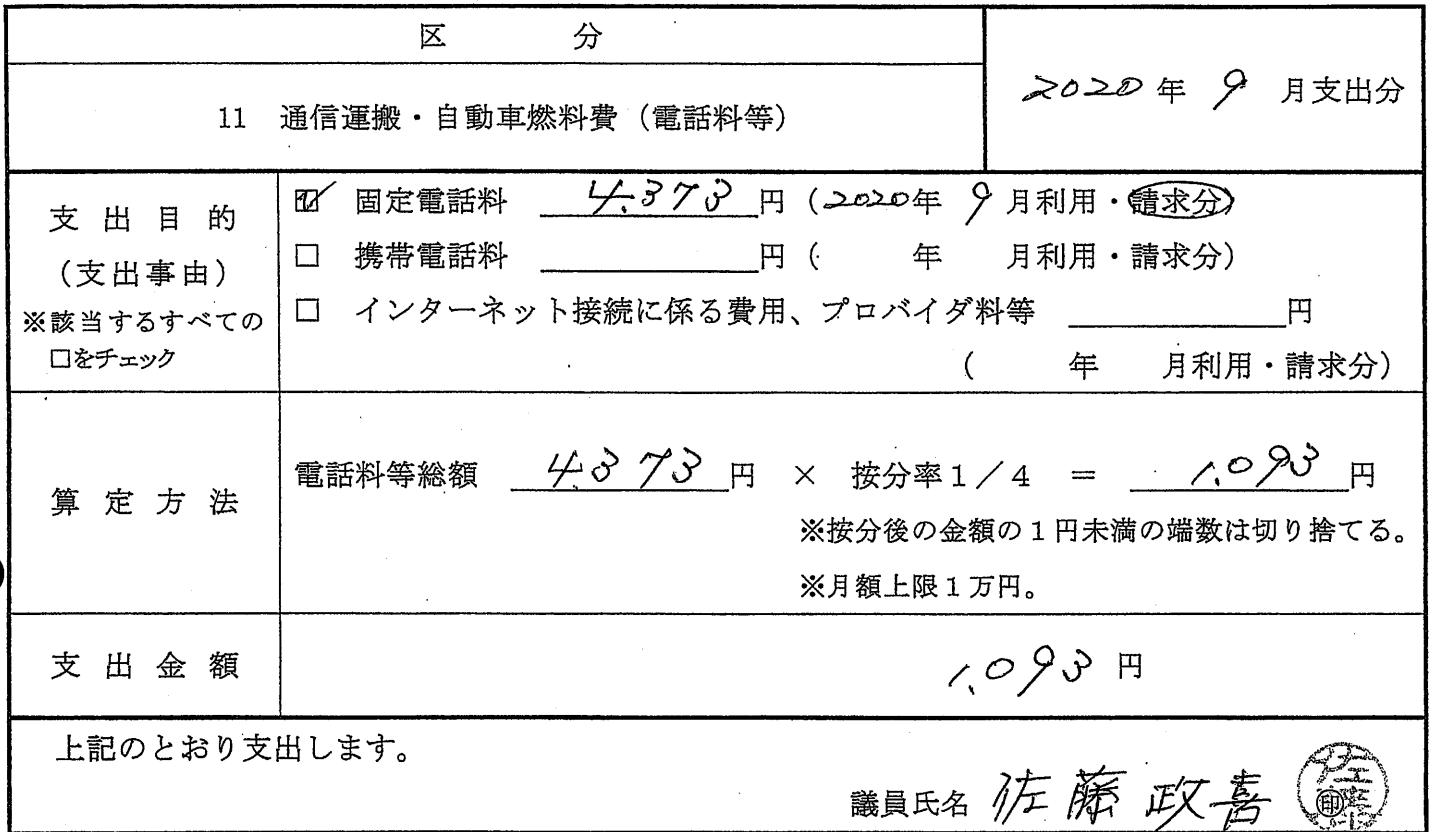 区 分
2020 年 9 月支出分
11 通信運搬・自動車燃料費（電話料等）
支出目的
（支出事由）
※該当するすべての
□をチェック
☑ 固定電話料 4,373 円（2020年 9 月利用・請求分）
□ 携帯電話料 円（ 年 月利用・請求分）
□ インターネット接続に係る費用、プロバイダ料等 円
（ 年 月利用・請求分）
算定方法
電話料等総額 4,373 円 × 按分率１／４ ＝ 1,093 円
※按分後の金額の１円未満の端数は切り捨てる。
※月額上限１万円。
支出金額
1,093 円
上記のとおり支出します。
議員氏名 佐藤 政喜 ㊞